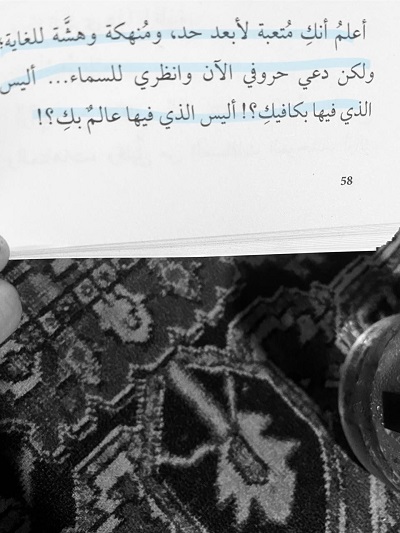 أعلمُ أنكِ مُتعبة لأبعد حد، ومُنهكة وهشَّة للغاية؛
ولكن دعي حروفي الآن وانظري للسماء... أليس
الذي فيها بكافيكِ؟! أليس الذي فيها عالمٌ بكِ؟!
58